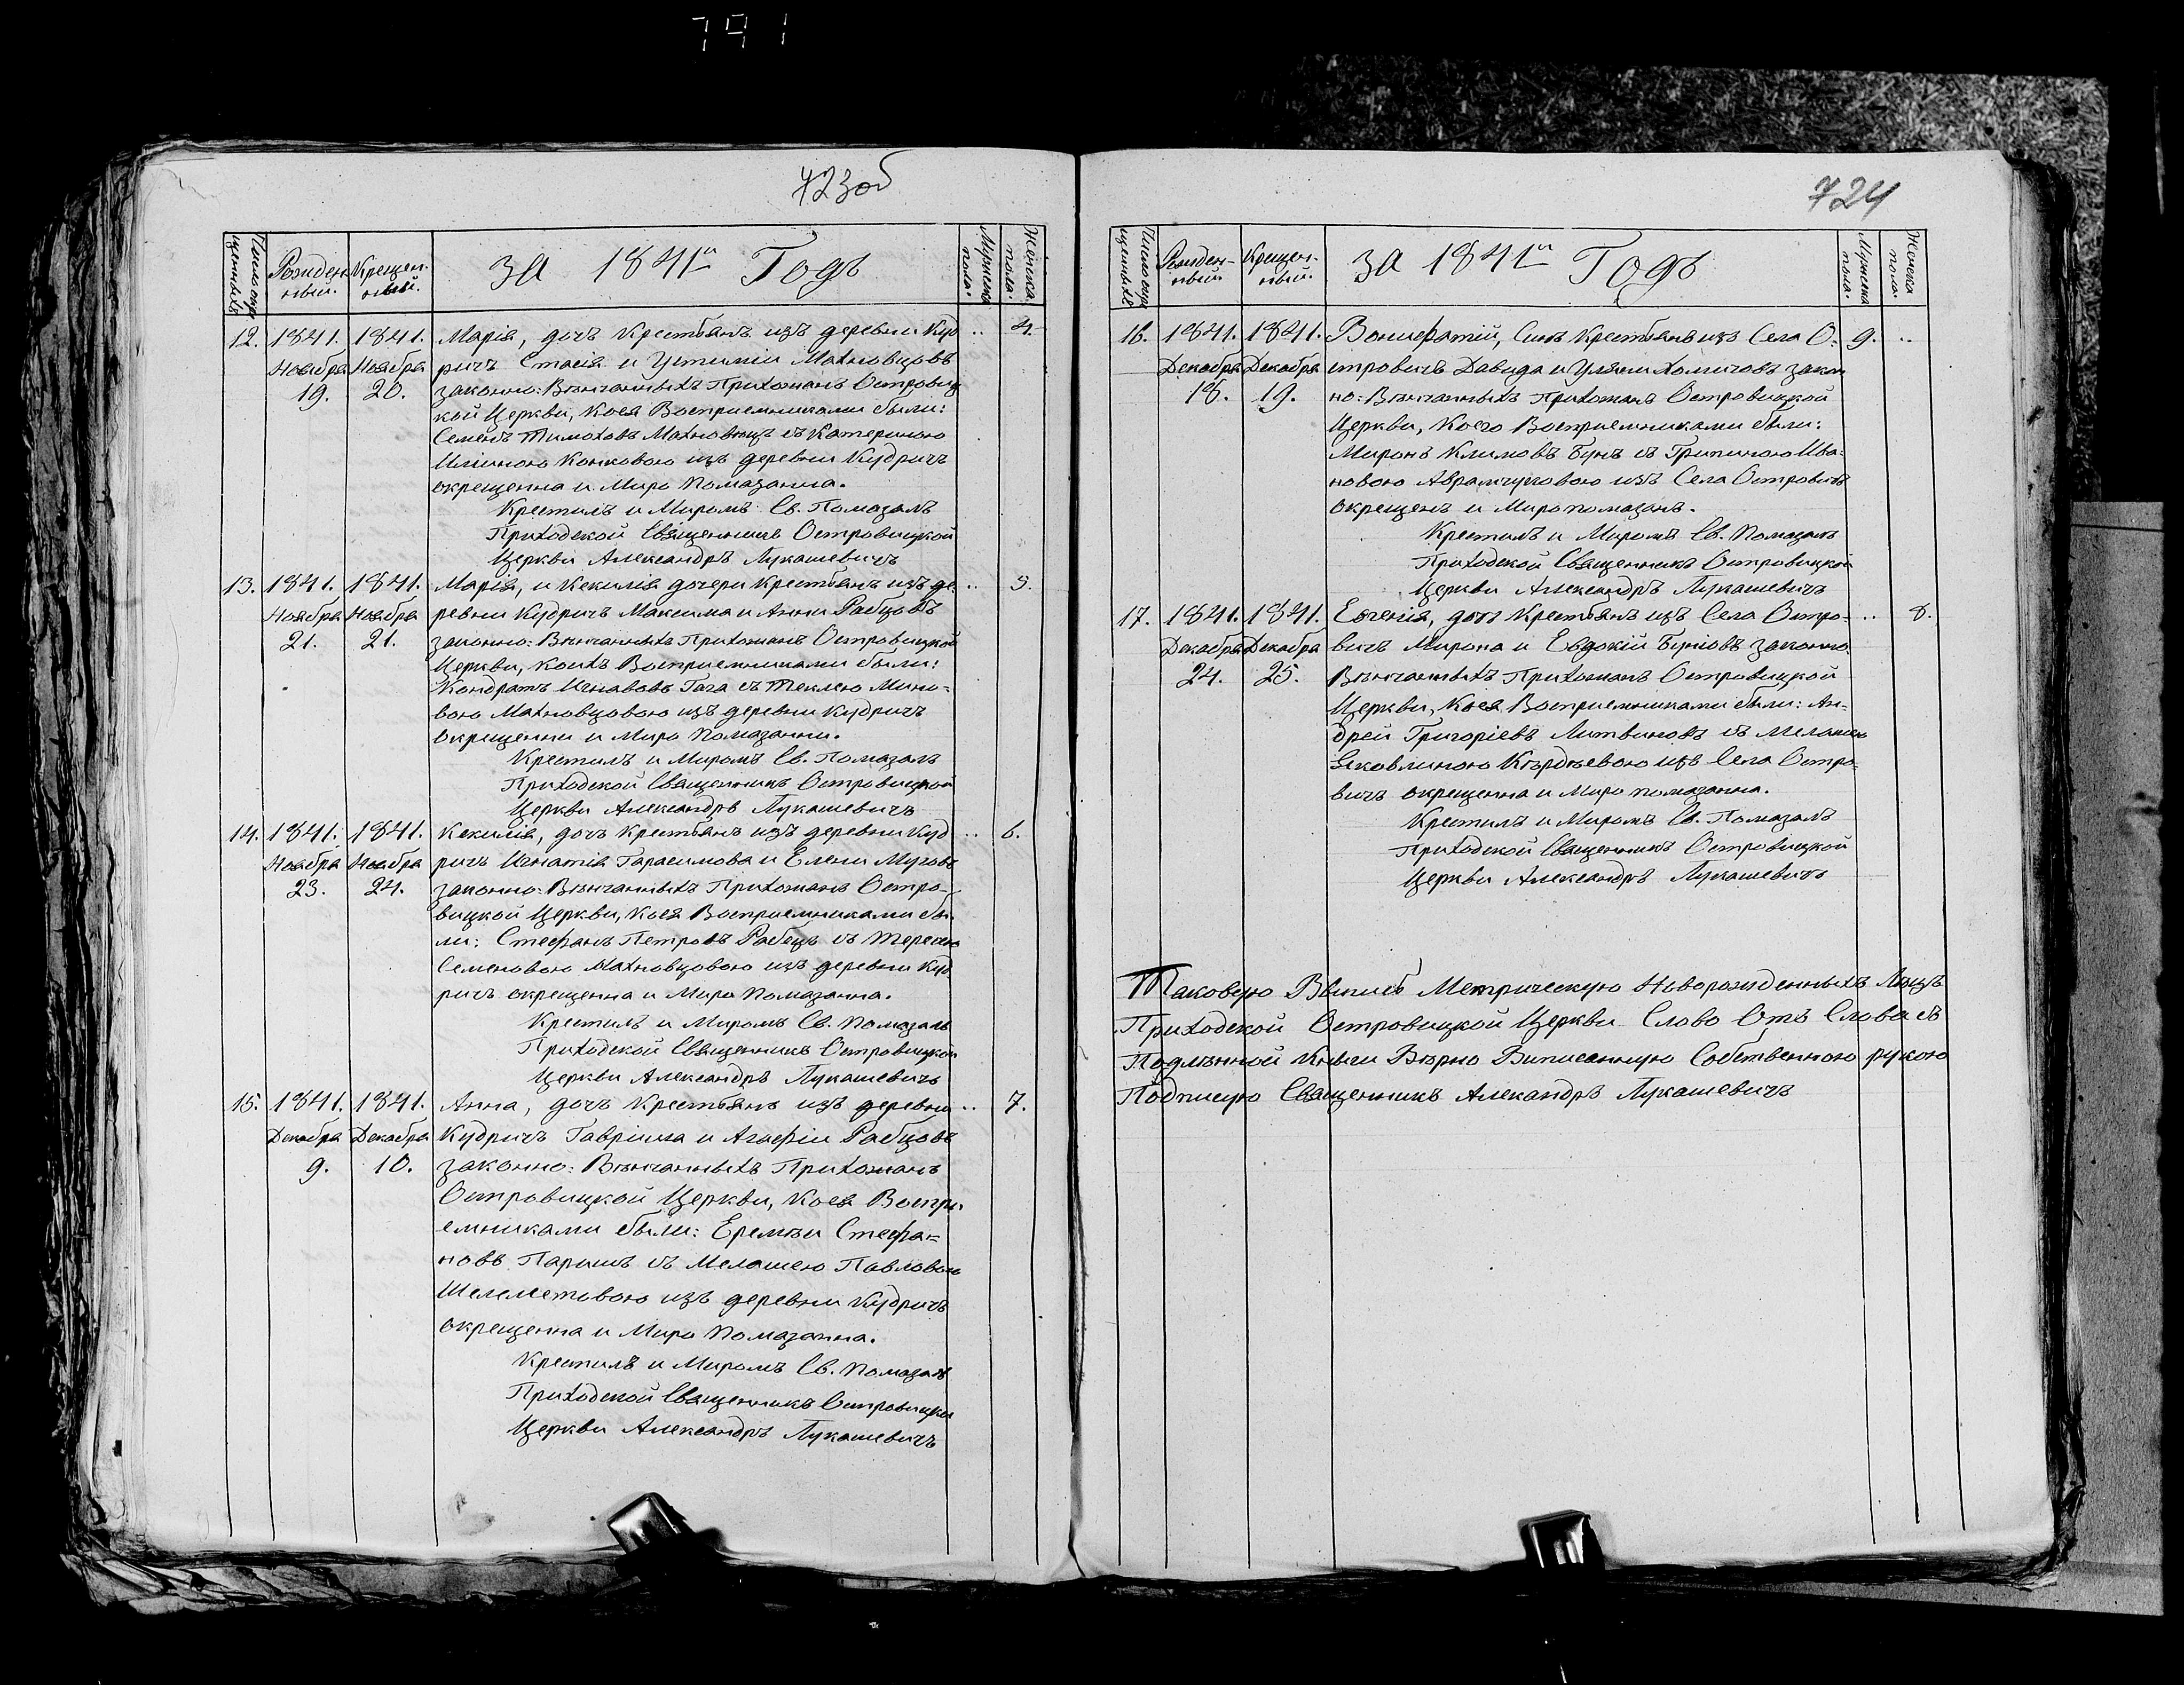 791
723об
Число окрещенныхъ
Рожден-
ный.
Крещен-
ный.
За 1841й Годъ
Мужеска пола.
Женска пола.
12. 1841. 1841. Марія, дочъ Крестьянъ изъ деревни Куд .. 4.
Ноября Ноября ричъ Стасія и Устиміи Махновцовъ
19. 20. законно: Венчанныхъ Прихожанъ Островиц
кой Церкви, Коея Восприемниками были:
Семенъ Тимоховъ Махновецъ съ Катериною
Илииною Конковою изъ деревни Кудричъ
окрещенна и Миро Помазанна.
Крестилъ и Миромъ Св. Помазалъ
Приходской Священникъ Островицкой
Церкви Александръ Лукашевичъ
13. 1841. 1841. Марія, и Кекилія дочери Крестьянъ изъ де- .. 5.
Ноября Ноября ревни Кудричъ Максима и Анны Рабцовъ
21. 21. законно: Венчанныхъ Прихожанъ Островицкой
Церкви, Коихъ Восприемниками были:
Кондратъ Игнавовъ Гага съ Теклею Мино-
вою Махновцовою изъ деревни Кудричъ
окрещенни и Миро Помазанни.
Крестилъ и Миромъ Св. Помазалъ
Приходской Священникъ Островицкой
Церкви Александръ Лукашевичъ
14. 1841. 1841. Кекилія, дочъ Крестьянъ изъ деревни Куд .. 6.
Ноября Ноября ричъ Игнатія Гарасимова и Елени Муговъ
23. 24. законно: Венчанныхъ Прихожанъ Остро-
вицкой Церкви, Коея Восприемниками бы-
ли: Стефанъ Петровъ Рабецъ съ Тересею
Семеновою Махновцовою изъ деревни Куд
ричъ окрещенна и Миро Помазанна.
Крестилъ и Миромъ Св. Помазалъ
Приходской Священникъ Островицкой
Церкви Александръ Лукашевичъ
15. 1841. 1841. Анна, дочъ Крестьянъ изъ деревни .. 7.
Декабря Декабря Кудричъ Гавріила и Агафіи Рабцовъ
9. 10. законно: Венчанныхъ Прихожанъ
Островицкой Церкви, Коея Воспри-
емниками были: Еремѣи Стефа-
новъ Паришъ съ Мелашею Павловою
Шелеметовою изъ деревни Кудричъ
окрещенна и Миро Помазанна.
Крестилъ и Миромъ Св. Помазалъ
Приходской Священникъ Островицкой
Церкви Александръ Лукашевичъ
724
Число окрещенныхъ
Рожден-
ный.
Крещен-
ный.
За 1841й Годъ
Мужеска пола.
Женска пола.
16. 1841. 1841. Вонифатій, Синъ Крестьянъ изъ Села О- 9. ..
Декабря Декабря стровичъ Давида и Уляни Хомичовъ закон
18. 19. но: Венчанныхъ Прихожанъ Островицкой
Церкви, Коего Восприемниками были:
Миронъ Климовъ Бунъ съ Грипиною Ива-
новою из Села Островичъ
окрещенъ и Миропомазанъ.
Крестилъ и Миромъ Св. Помазалъ
Приходской Священникъ Островицкой
Церкви Александръ Лукашевичъ
17. 1841. 1841. Евгенія, дочъ Крестьянъ изъ Села Остро- .. 8.
Декабря Декабря вичъ Мирона и Евдокій Буновъ законно
24. 25. Венчанныхъ Прихожанъ Островицкой
Церкви, Коея Восприемниками были: Ан-
дрей Григоріевъ Литвиновъ съ Меланіею
Яковлиною изъ Села Остро-
вичъ окрещенна и Миро помазанна.
Крестилъ и Миромъ Св. Помазалъ
Приходской Священникъ Островицкой
Церкви Александръ Лукашевичъ
Таковую Выписъ Метрическую Новорожденныхъ Лицъ
Приходской Островицкой Церкви Слово Отъ Слова съ
Подлѣнной Книги Вѣрно Виписанную Собственною рукою
Подписую Священникъ Александръ Лукашевичъ